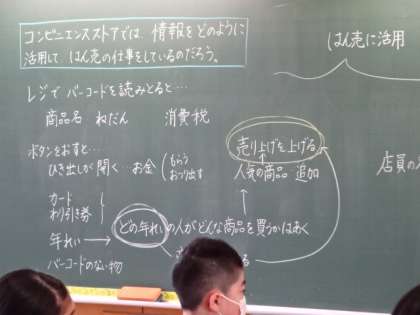 コンビニエンスストアでは、情報をどのように
活用して、はん売の仕事をしているのだろう。
はん売に活用
レジでバーコードを読みとると…
商品名 ねだん 消費税
売り上げを上げる
ボタンをおすと…
ひき出しが開く…お金
もらう
おつり出す
人気の商品 追加
店員の
カード
わり引き券
どの年れいの人がどんな商品を買うかはあく
年れい
バーコードのない物
る